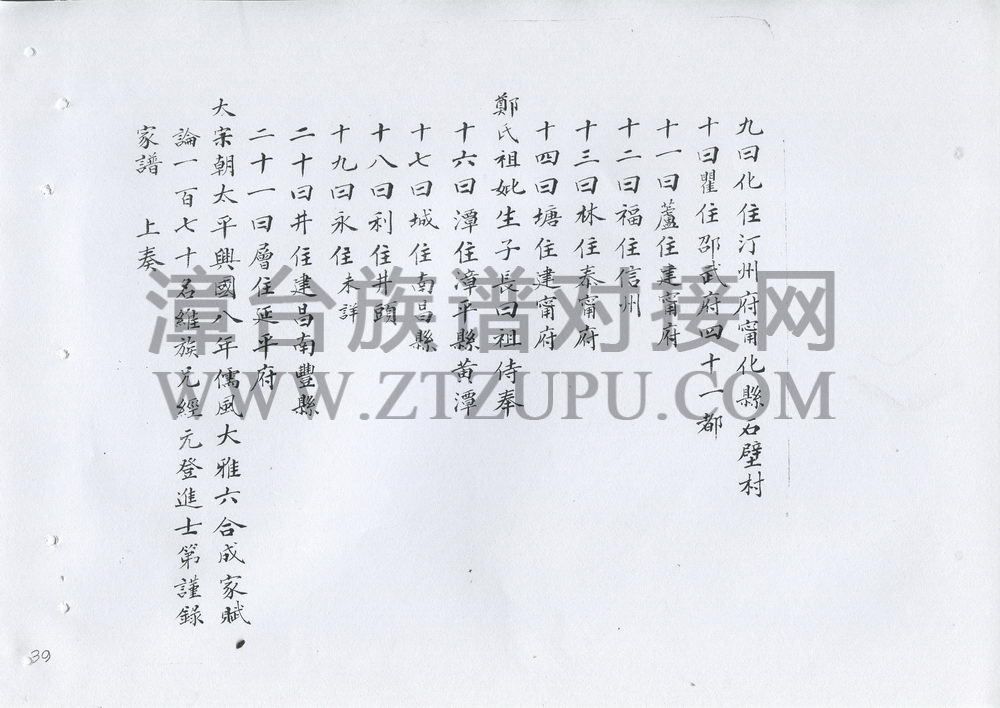 九曰化住汀州府甯化縣石壁村
十曰瞿住邵武府四十一都
十一曰蘆住建甯府
十二曰福住信州
十三曰林住泰甯府
十四曰塘住建甯府
鄭氏祖妣生子長曰祖侍奉
十六曰潭住漳平縣黃潭
十七曰城住南昌縣
十八曰利住井頭
十九曰永住未詳
二十曰井住建昌南豐縣
二十一曰層住延平府
大宋朝太平興國八年儒風大雅六合成家賦
論一百七十名維族兄經元登進士第謹錄
家譜 上奏
漳台族谱对接网
WWW.ZTZUPU.COM
39